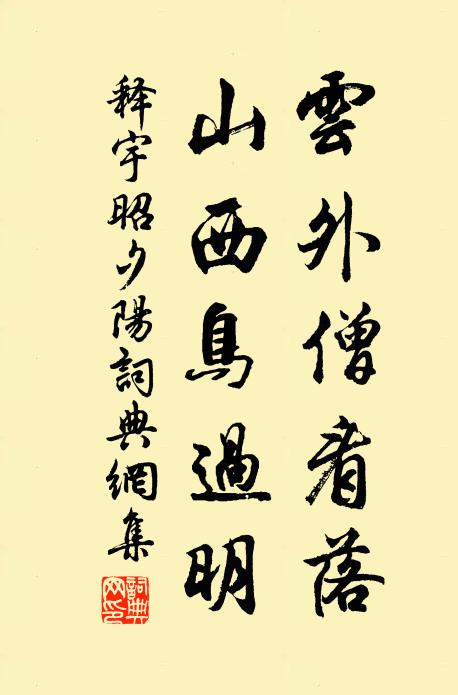 雲外僧看落
山西鳥過明
释宇昭夕陽詞典網集
詞典网印